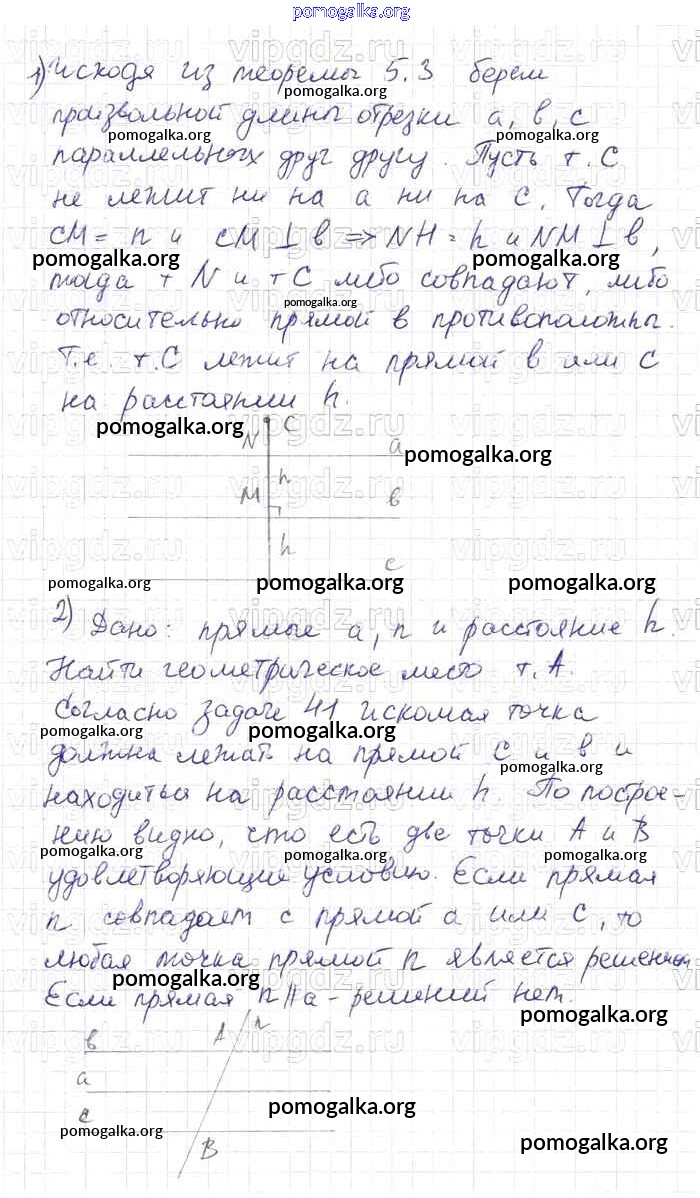 pomogalka.org
1) исходя из теоремы 5.3 берем
pomogalka.org
произвольной длины отрезки a, в, с
pomogalka.org pomogalka.org
параллельных друг другу. Пусть т. С
не лежит ни на а ни на с, тогда
СМ = h и СМ ⊥ в => NH = h и NM ⊥ в,
pomogalka.org pomogalka.org
тогда т N и т С либо совпадают, либо
pomogalka.org
относительно прямой в противоположны.
Т.е. т. С лежит на прямой в или с
на расстоянии h.
pomogalka.org
N C a
pomogalka.org
M h в
h c
pomogalka.org pomogalka.org pomogalka.org
2) Дано: прямые а, n и расстояние h.
Найти геометрическое место т. А.
Согласно задаче 41 искомая точка
pomogalka.org pomogalka.org
должна лежать на прямой с и в и
pomogalka.org
находиться на расстоянии h. По построе-
нию видно, что есть две точки А и В
pomogalka.org pomogalka.org pomogalka.org
удовлетворяющие условию. Если прямая
n совпадает с прямой а или с, то
любая точка прямой n является решением
pomogalka.org
Если прямая n || а - решений нет.
pomogalka.org
в A n
a
pomogalka.org
c
pomogalka.org
B
pomogalka.org
vipgdz.ru